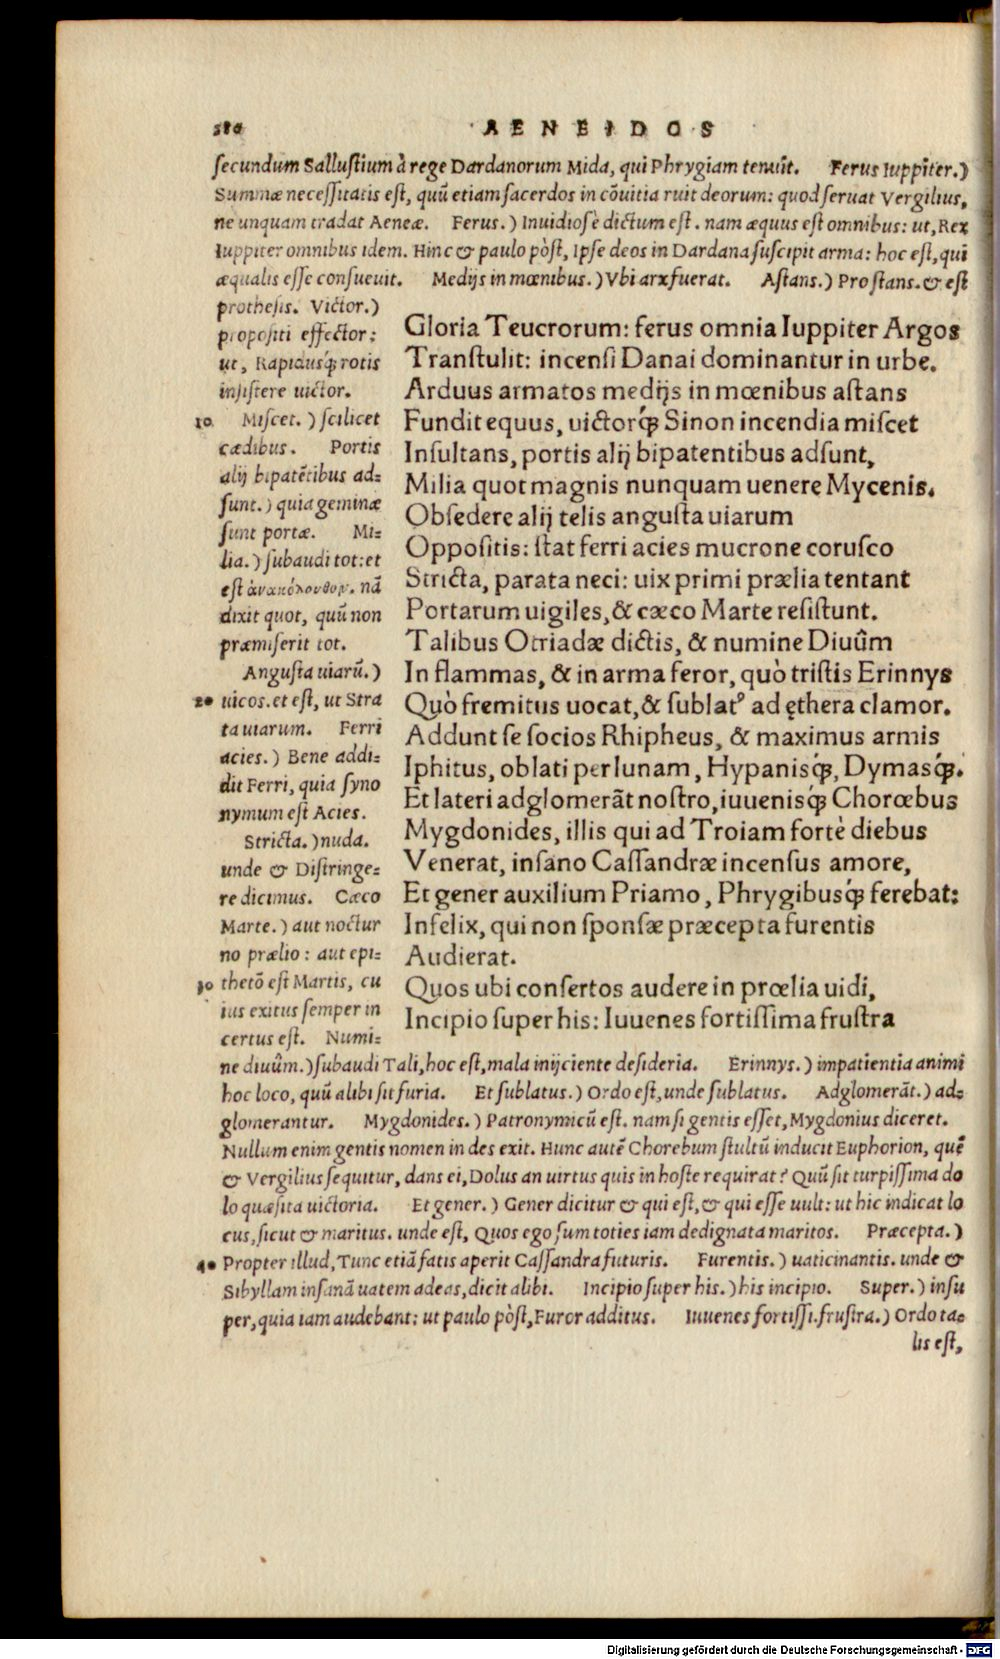 AENEIDOS
secundum Sallustium à rege Dardanorum Mida, qui Phrygiam tenuit. Ferus Iuppiter.)
Summæ necessitatis est, quũ etiam sacerdos in cõuitia ruit deorum: quod seruat Vergilius,
ne unquam tradat Aeneæ. Ferus.) Inuidiosè dictum est. nam æquus est omnibus: ut, Rex
Iuppiter omnibus idem. Hinc & paulo pòst, Ipse deos in Dardana suscipit arma: hoc est, qui
æqualis esse consueuit. Medijs in mœnibus.) Vbi arx fuerat. Astans.) Pro stans. & est
prothesis. Victor.)
propositi effector:
ut, Rapidusq́; rotis
insistere uictor.
10 Miscet.) scilicet
cædibus. Portis
alij bipatẽtibus ad-
sunt.) quia geminæ
sunt portæ. Mi-
lia.) subaudi tot: et
est ἀνακόλουθον. nã
dixit quot, quũ non
præmiserit tot.
Angusta uiarũ.)
20 uicos. et est, ut Stra
ta uiarum. Ferri
acies.) Bene addi-
dit Ferri, quia syno
nymum est Acies.
Stricta.) nuda.
unde & Distringe-
re dicimus. Cæco
Marte.) aut noctur
no prælio: aut epi-
30 thetõ est Martis, cu
ius exitus semper in
certus est. Numi-
Gloria Teucrorum: ferus omnia Iuppiter Argos
Transtulit: incensi Danai dominantur in urbe.
Arduus armatos medijs in mœnibus astans
Fundit equus, uictorq́; Sinon incendia miscet
Insultans, portis alij bipatentibus adsunt,
Milia quot magnis nunquam uenere Mycenis.
Obsedere alij telis angusta uiarum
Oppositis: stat ferri acies mucrone corusco
Stricta, parata neci: uix primi prælia tentant
Portarum uigiles, & cæco Marte resistunt.
Talibus Otriadæ dictis, & numine Diuûm
In flammas, & in arma feror, quò tristis Erinnys
Quò fremitus uocat, & sublatꝰ ad ęthera clamor.
Addunt se socios Rhipheus, & maximus armis
Iphitus, oblati per lunam, Hypanisq́;, Dymasq́;.
Et lateri adglomerãt nostro, iuuenisq́; Chorœbus
Mygdonides, illis qui ad Troiam fortè diebus
Venerat, insano Cassandræ incensus amore,
Et gener auxilium Priamo, Phrygibusq́; ferebat:
Infelix, qui non sponsæ præcepta furentis
Audierat.
Quos ubi consertos audere in prœlia uidi,
Incipio super his: Iuuenes fortissima frustra
ne diuûm.) subaudi Tali, hoc est, mala inijciente desideria. Erinnys.) impatientia animi
hoc loco, quũ alibi sit furia. Et sublatus.) Ordo est, unde sublatus. Adglomerãt.) ad-
glomerantur. Mygdonides.) Patronymicũ est. nam si gentis esset, Mygdonius diceret.
Nullum enim gentis nomen in des exit. Hunc autẽ Chorebum stultũ inducit Euphorion, quẽ
& Vergilius sequitur, dans ei, Dolus an uirtus quis in hoste requirat? Quũ sit turpissima do
lo quæsita uictoria. Et gener.) Gener dicitur & qui est, & qui esse uult: ut hic indicat lo
cus, sicut & maritus. unde est, Quos ego sum toties iam dedignata maritos. Præcepta.)
40 Propter illud, Tunc etiã fatis aperit Cassandra futuris. Furentis.) uaticinantis. unde &
Sibyllam insanã uatem adeas, dicit alibi. Incipio super his.) his incipio. Super.) insu
per, quia iam audebant: ut paulo pòst, Furor additus. Iuuenes fortissi. frustra.) Ordo ta-
lis est,
Digitalisierung gefördert durch die Deutsche Forschungsgemeinschaft - DFG